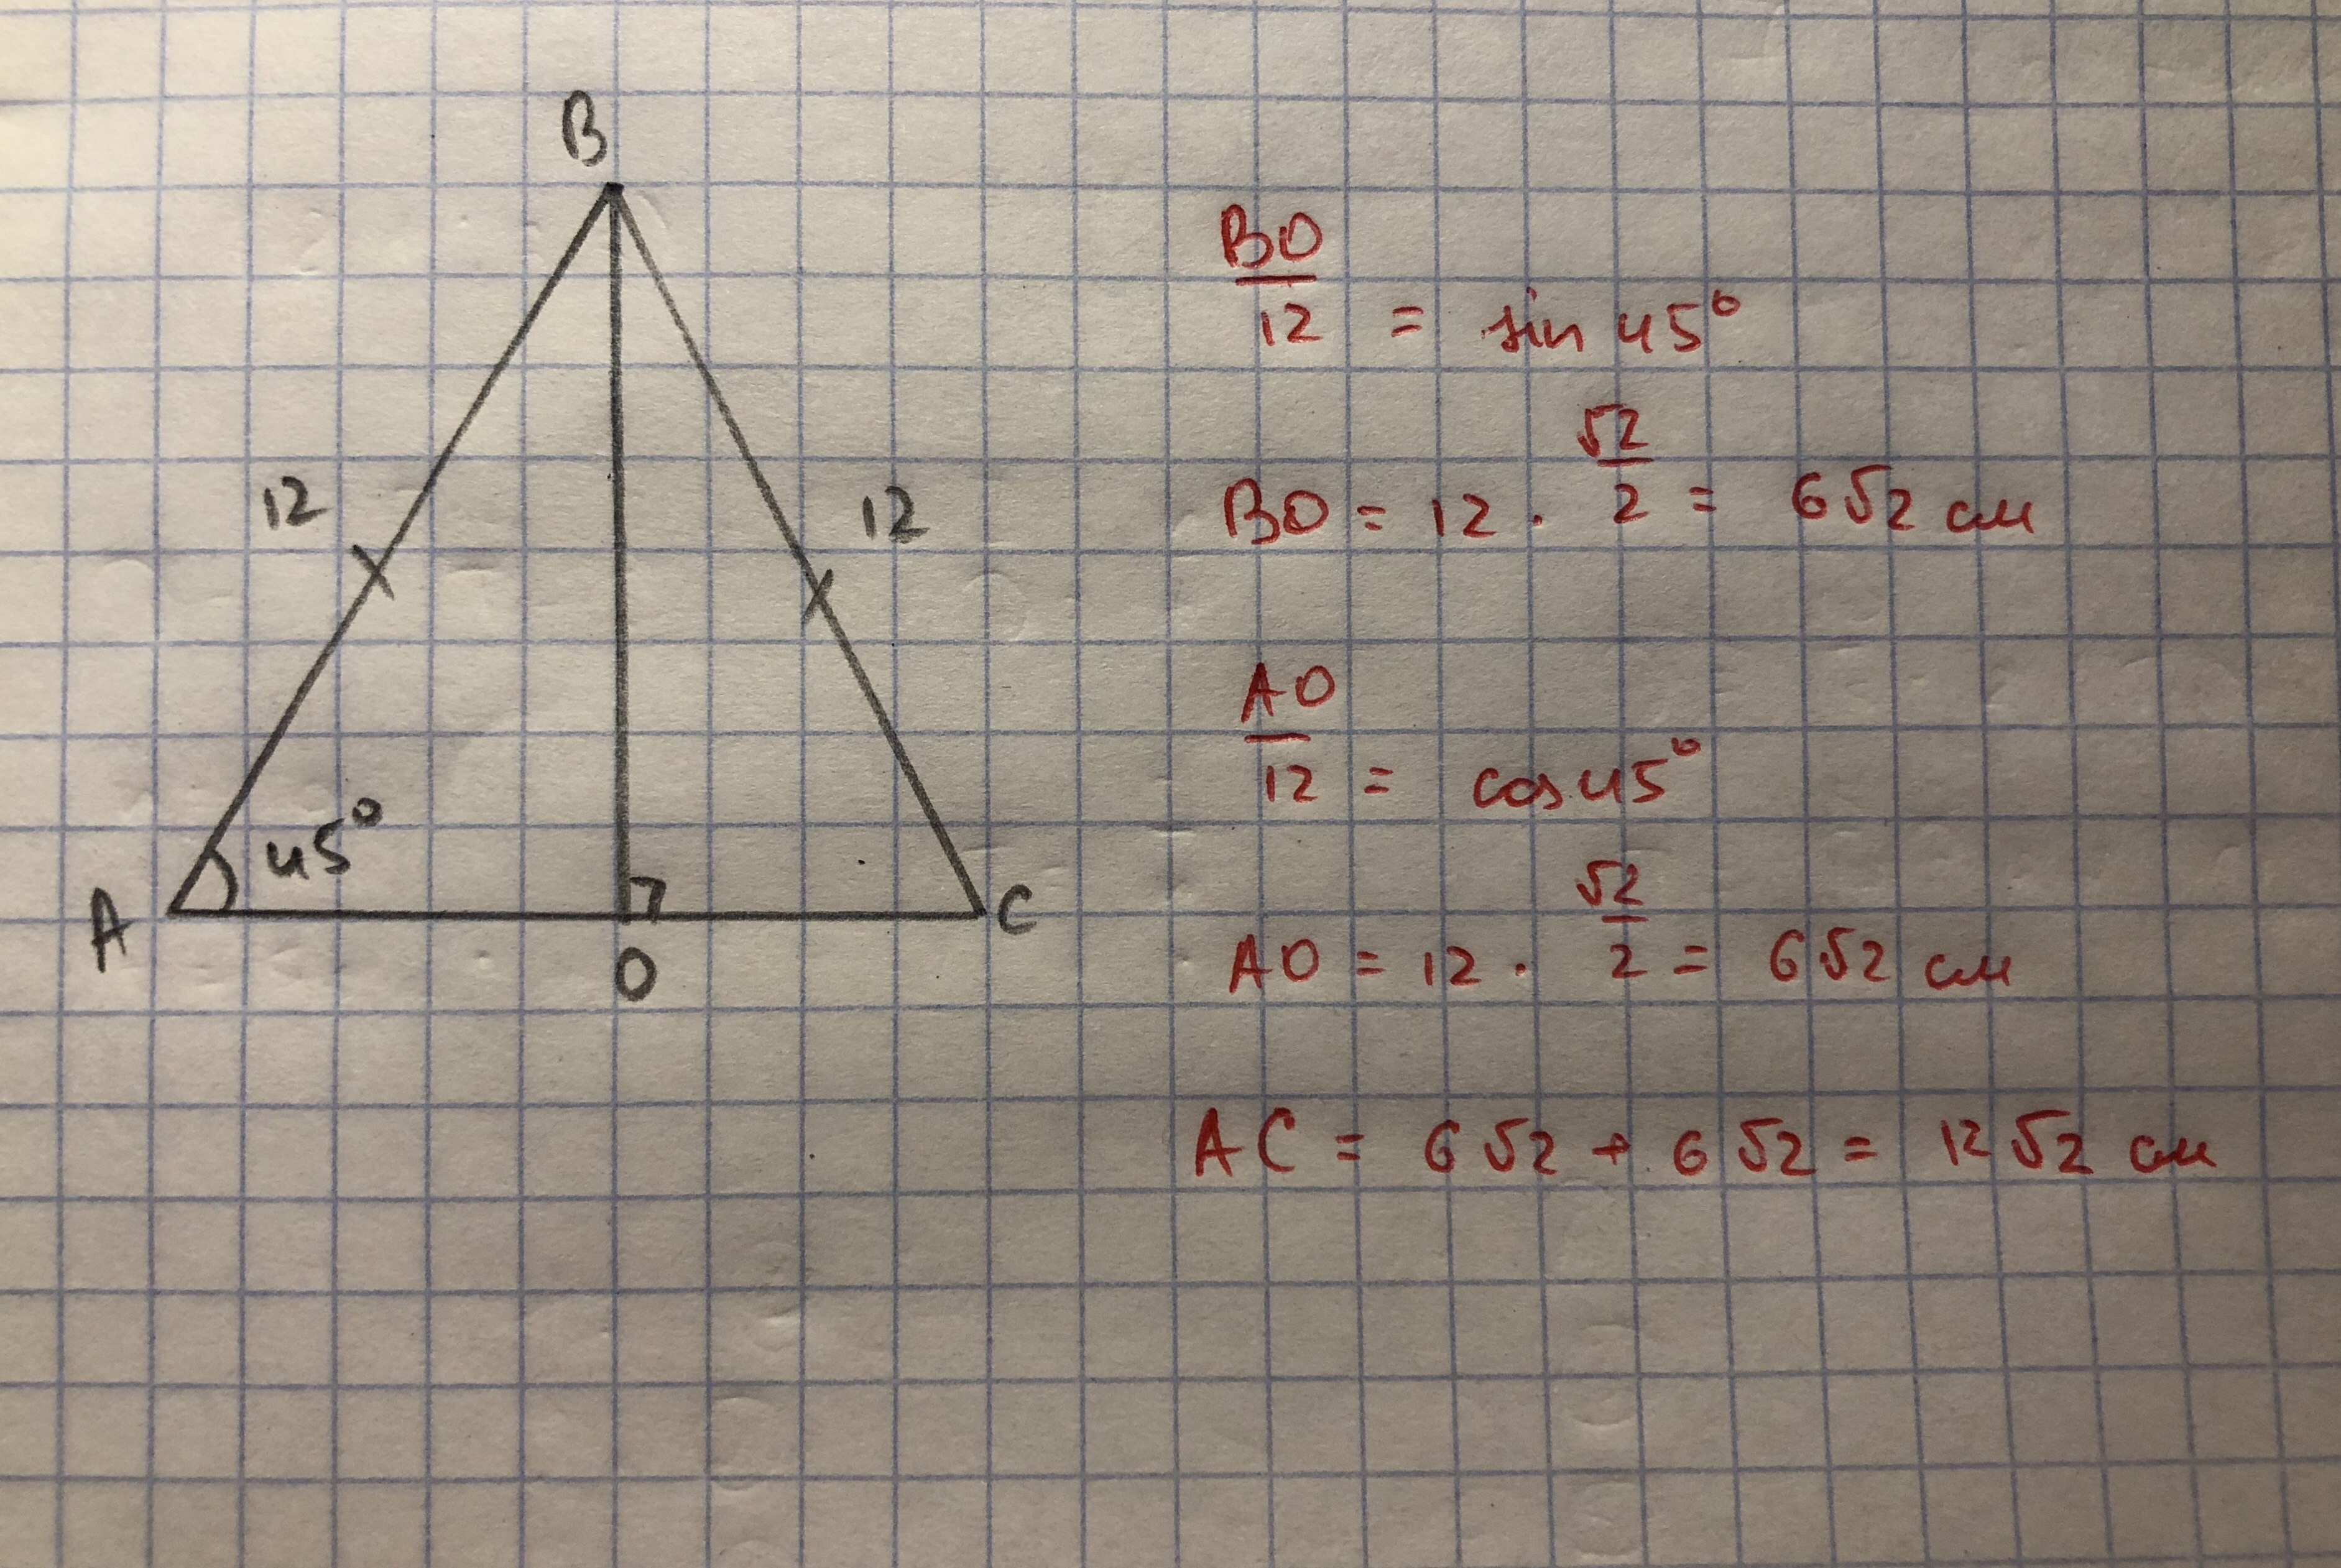 B
12
12
45°
A
C
O
BO
12 = sin 45°
√2
BO = 12 · 2 = 6√2 см
AO
12 = cos 45°
√2
AO = 12 · 2 = 6√2 см
AC = 6√2 + 6√2 = 12√2 см